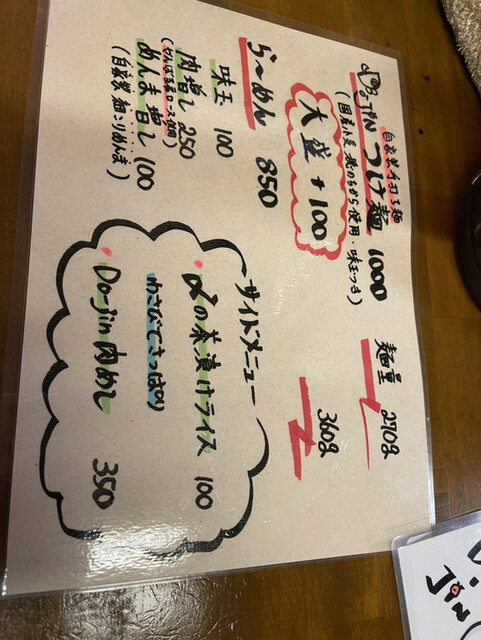 自家製手打ち麺
Do-JIN つけ麺 1000
(国産小麦 のちから使用・味玉つき)
大盛 +100
麺量 270g
360g
らーめん 850
味玉 100
肉増し 250
めんま増し 100
(自家製 こりめんま)
サイドメニュー
・〆の茶漬けライス 100
わさびでさっぱり
・Do-jin 肉めし 350
Jin